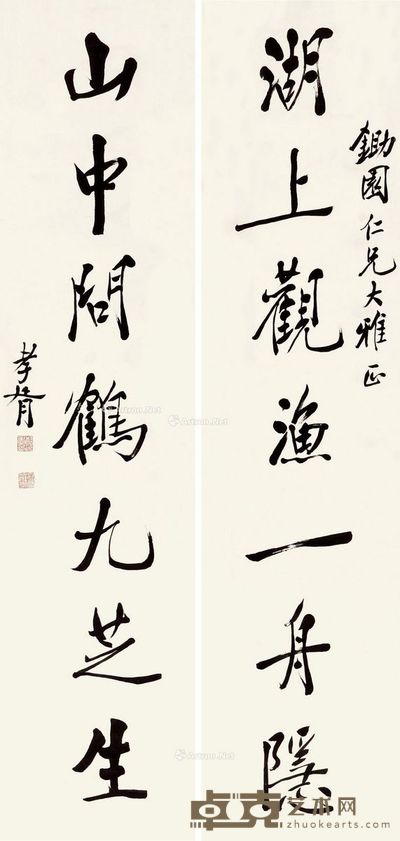 鋤園仁兄大雅正
湖上觀漁一舟隱
山中問鶴九芝生
孝胥
Artron.Net
Artron.Net
Artron.Net
Artron.Net
卓克艺术网
zhuokearts.com